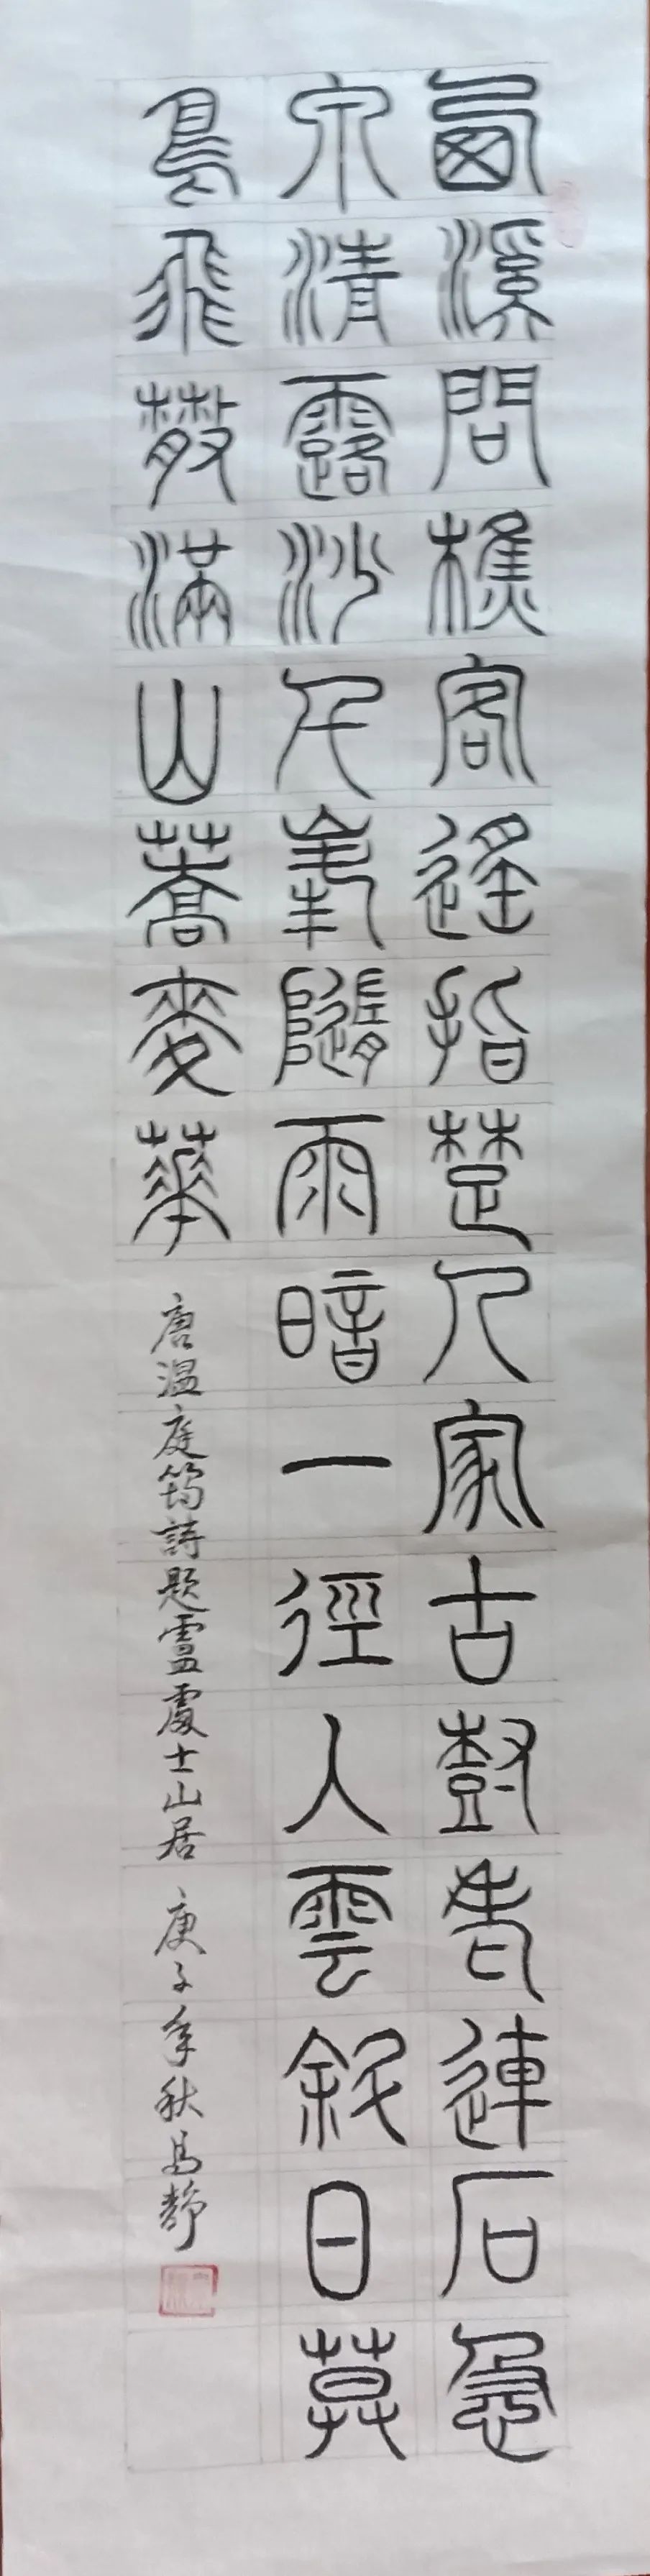 西溪問樵客遙指楚人家古樹老連石急
泉清露沙千峯隨雨暗一徑入雲斜日莫
鳥飛散滿山蕎麥華
唐温庭筠詩題盧處士山居 庚子年秋馬静